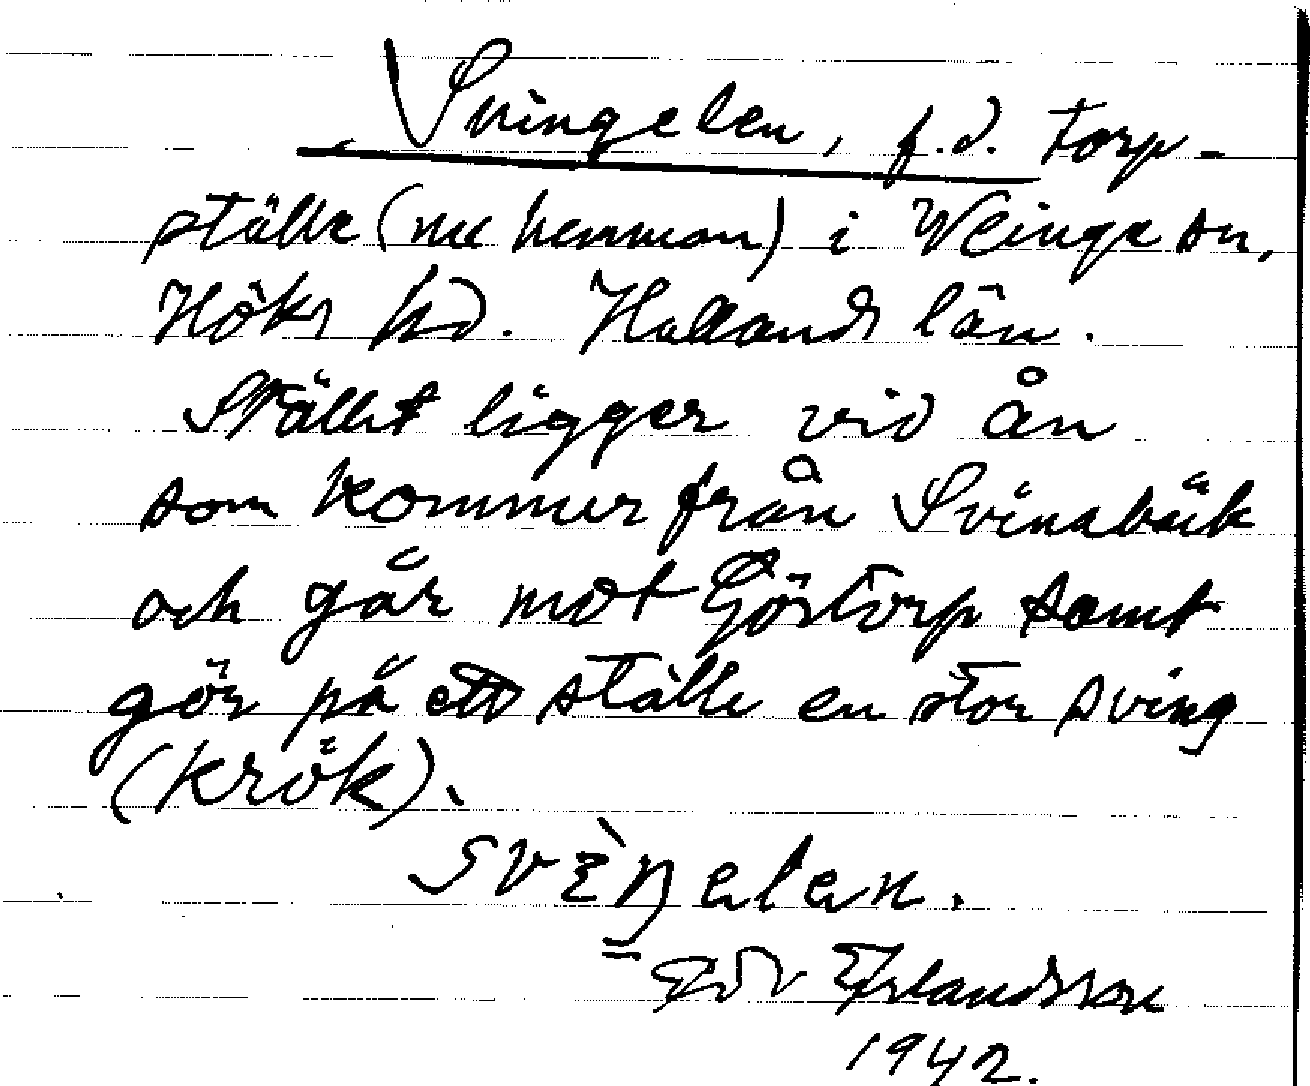 Svingelen, f.d. torp-
ställe (nu hemman) i Weinge sn,
Höks hd. Hallands län.
Stället ligger vid ån
som kommer från Svinabäck
och går mot Göstorp samt
gör på ett ställe en stor sving
(krök).
svèŋelen.
Edv Erlandsson
1942.